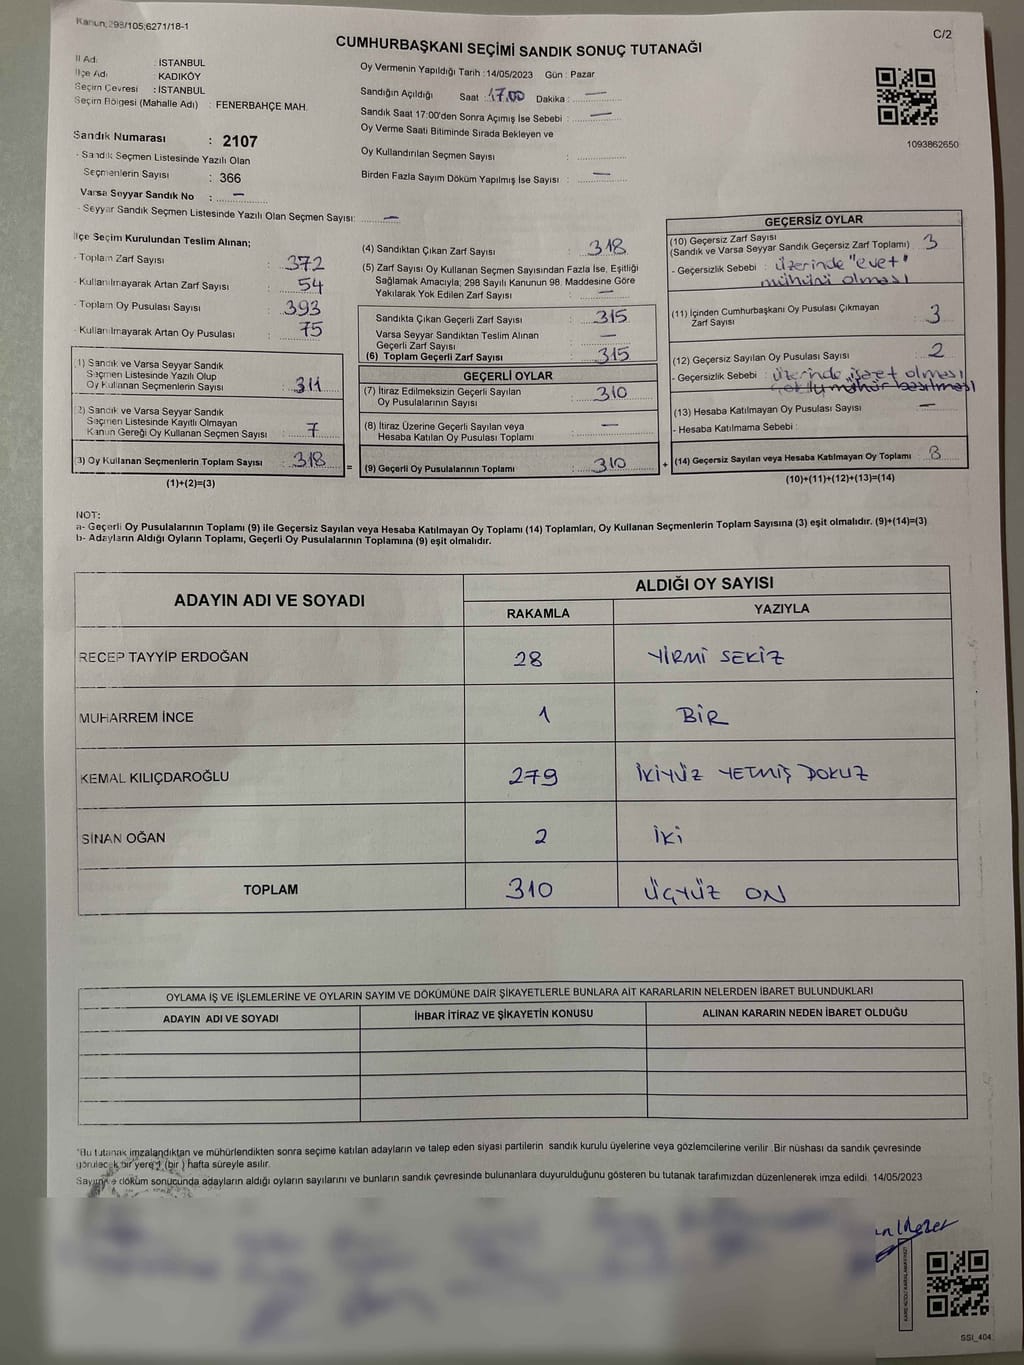 Kanun;298/105;6271/18-1
C/2
CUMHURBAŞKANI SEÇİMİ SANDIK SONUÇ TUTANAĞI
İl Adı : İSTANBUL
İlçe Adı : KADIKÖY
Seçim Çevresi : İSTANBUL
Seçim Bölgesi (Mahalle Adı) : FENERBAHÇE MAH.
Oy Vermenin Yapıldığı Tarih : 14/05/2023 Gün : Pazar
Sandığın Açıldığı Saat : 17.00 Dakika : —
Sandık Saat 17:00'den Sonra Açımış İse Sebebi : —
Oy Verme Saati Bitiminde Sırada Bekleyen ve
Oy Kullandırılan Seçmen Sayısı :
Birden Fazla Sayım Döküm Yapılmış İse Sayısı : —
1093862650
Sandık Numarası : 2107
- Sandık Seçmen Listesinde Yazılı Olan
Seçmenlerin Sayısı : 366
Varsa Seyyar Sandık No : —
- Seyyar Sandık Seçmen Listesinde Yazılı Olan Seçmen Sayısı: —
İlçe Seçim Kurulundan Teslim Alınan;
- Toplam Zarf Sayısı : 372
- Kullanılmayarak Artan Zarf Sayısı : 54
- Toplam Oy Pusulası Sayısı : 393
- Kullanılmayarak Artan Oy Pusulası : 75
1) Sandık ve Varsa Seyyar Sandık
Seçmen Listesinde Yazılı Olup
Oy Kullanan Seçmenlerin Sayısı : 311
2) Sandık ve Varsa Seyyar Sandık
Seçmen Listesinde Kayıtlı Olmayan
Kanun Gereği Oy Kullanan Seçmen Sayısı : 7
(3) Oy Kullanan Seçmenlerin Toplam Sayısı : 318
(1)+(2)=(3)
(4) Sandıktan Çıkan Zarf Sayısı : 318
(5) Zarf Sayısı Oy Kullanan Seçmen Sayısından Fazla İse, Eşitliği
Sağlamak Amacıyla; 298 Sayılı Kanunun 98. Maddesine Göre
Yakılarak Yok Edilen Zarf Sayısı : —
Sandıkta Çıkan Geçerli Zarf Sayısı : 315
Varsa Seyyar Sandıktan Teslim Alınan
Geçerli Zarf Sayısı : —
(6) Toplam Geçerli Zarf Sayısı : 315
GEÇERLİ OYLAR
(7) İtiraz Edilmeksizin Geçerli Sayılan
Oy Pusulalarının Sayısı : 310
(8) İtiraz Üzerine Geçerli Sayılan veya
Hesaba Katılan Oy Pusulası Toplamı : —
= (9) Geçerli Oy Pusulalarının Toplamı : 310 +
GEÇERSİZ OYLAR
(10) Geçersiz Zarf Sayısı
(Sandık ve Varsa Seyyar Sandık Geçersiz Zarf Toplamı) 3
- Geçersizlik Sebebi : üzerinde "evet"
mühürü olması
(11) İçinden Cumhurbaşkanı Oy Pusulası Çıkmayan
Zarf Sayısı : 3
(12) Geçersiz Sayılan Oy Pusulası Sayısı : 2
- Geçersizlik Sebebi : üzerinde işaret olması
(13) Hesaba Katılmayan Oy Pusulası Sayısı : —
- Hesaba Katılmama Sebebi :
(14) Geçersiz Sayılan veya Hesaba Katılmayan Oy Toplamı : 8
(10)+(11)+(12)+(13)=(14)
NOT:
a- Geçerli Oy Pusulalarının Toplamı (9) ile Geçersiz Sayılan veya Hesaba Katılmayan Oy Toplamı (14) Toplamları, Oy Kullanan Seçmenlerin Toplam Sayısına (3) eşit olmalıdır. (9)+(14)=(3)
b- Adayların Aldığı Oyların Toplamı, Geçerli Oy Pusulalarının Toplamına (9) eşit olmalıdır.
ADAYIN ADI VE SOYADI
ALDIĞI OY SAYISI
RAKAMLA YAZIYLA
RECEP TAYYİP ERDOĞAN 28 YİRMİ SEKİZ
MUHARREM İNCE 1 BİR
KEMAL KILIÇDAROĞLU 279 İKİYÜZ YETMİŞ DOKUZ
SİNAN OĞAN 2 İKİ
TOPLAM 310 ÜÇYÜZ ON
OYLAMA İŞ VE İŞLEMLERİNE VE OYLARIN SAYIM VE DÖKÜMÜNE DAİR ŞİKAYETLERLE BUNLARA AİT KARARLARIN NELERDEN İBARET BULUNDUKLARI
ADAYIN ADI VE SOYADI İHBAR İTİRAZ VE ŞİKAYETİN KONUSU ALINAN KARARIN NEDEN İBARET OLDUĞU
*Bu tutanak imzalandıktan ve mühürlendikten sonra seçime katılan adayların ve talep eden siyasi partilerin sandık kurulu üyelerine veya gözlemcilerine verilir .Bir nüshası da sandık çevresinde
görülecek bir yere 1 (bir ) hafta süreyle asılır.
Sayım ve döküm sonucunda adayların aldığı oyların sayılarını ve bunların sandık çevresinde bulunanlara duyurulduğunu gösteren bu tutanak tarafımızdan düzenlenerek imza edildi. 14/05/2023
SSİ_404